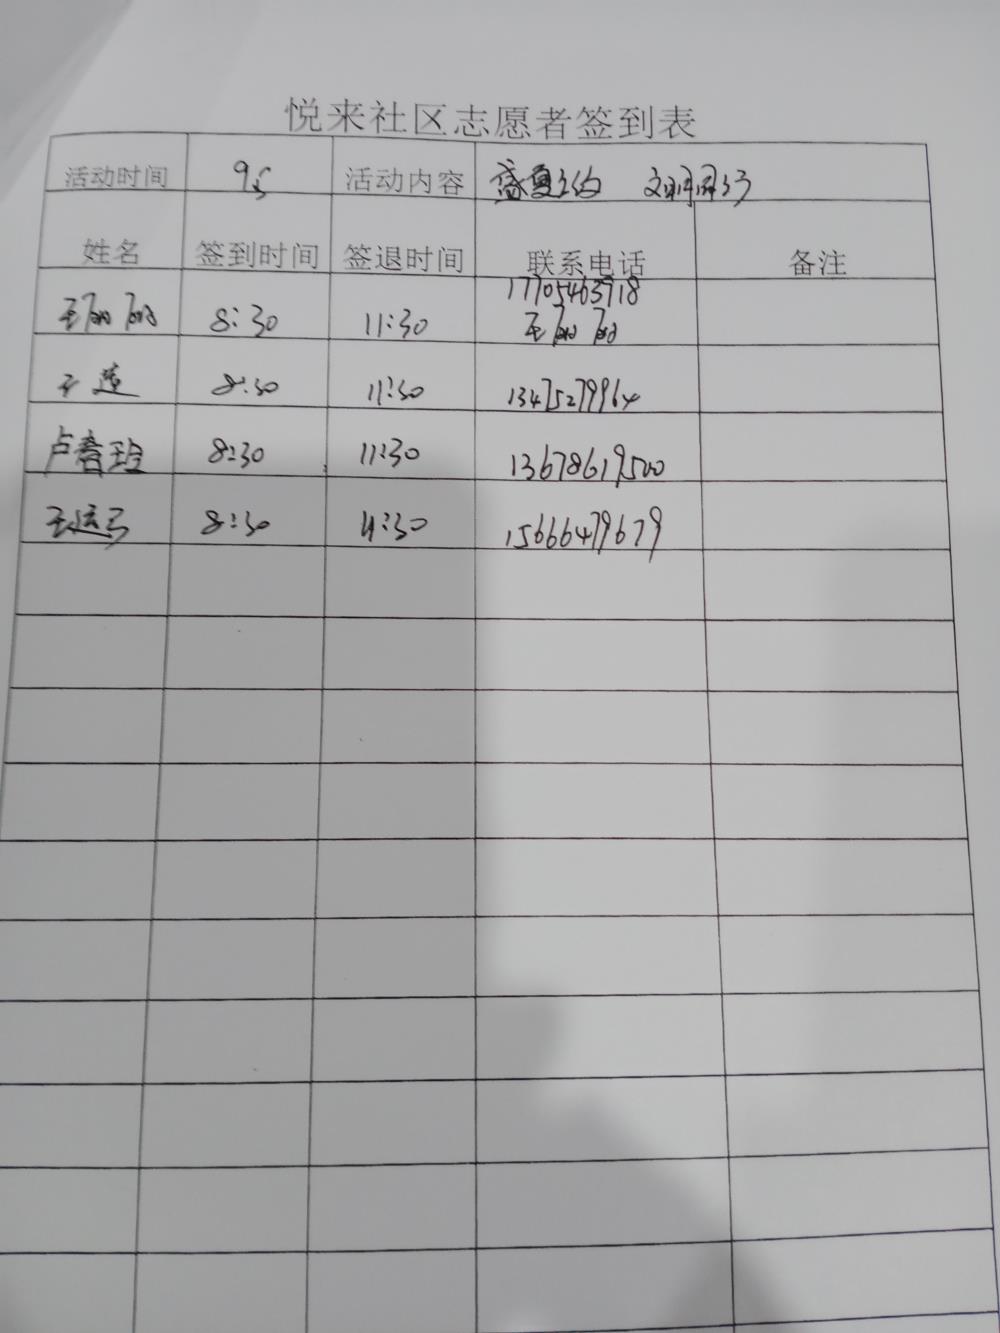 悦来社区志愿者签到表
活动时间 9.5 活动内容 盛夏之约 文明同行
姓名 签到时间 签退时间 联系电话 备注
17705463718
王丽丽 8:30 11:30 王丽丽
王莲 8:30 11:30 13475279964
卢春玲 8:30 11:30 13678619500
王运弓 8:30 11:30 15666479679